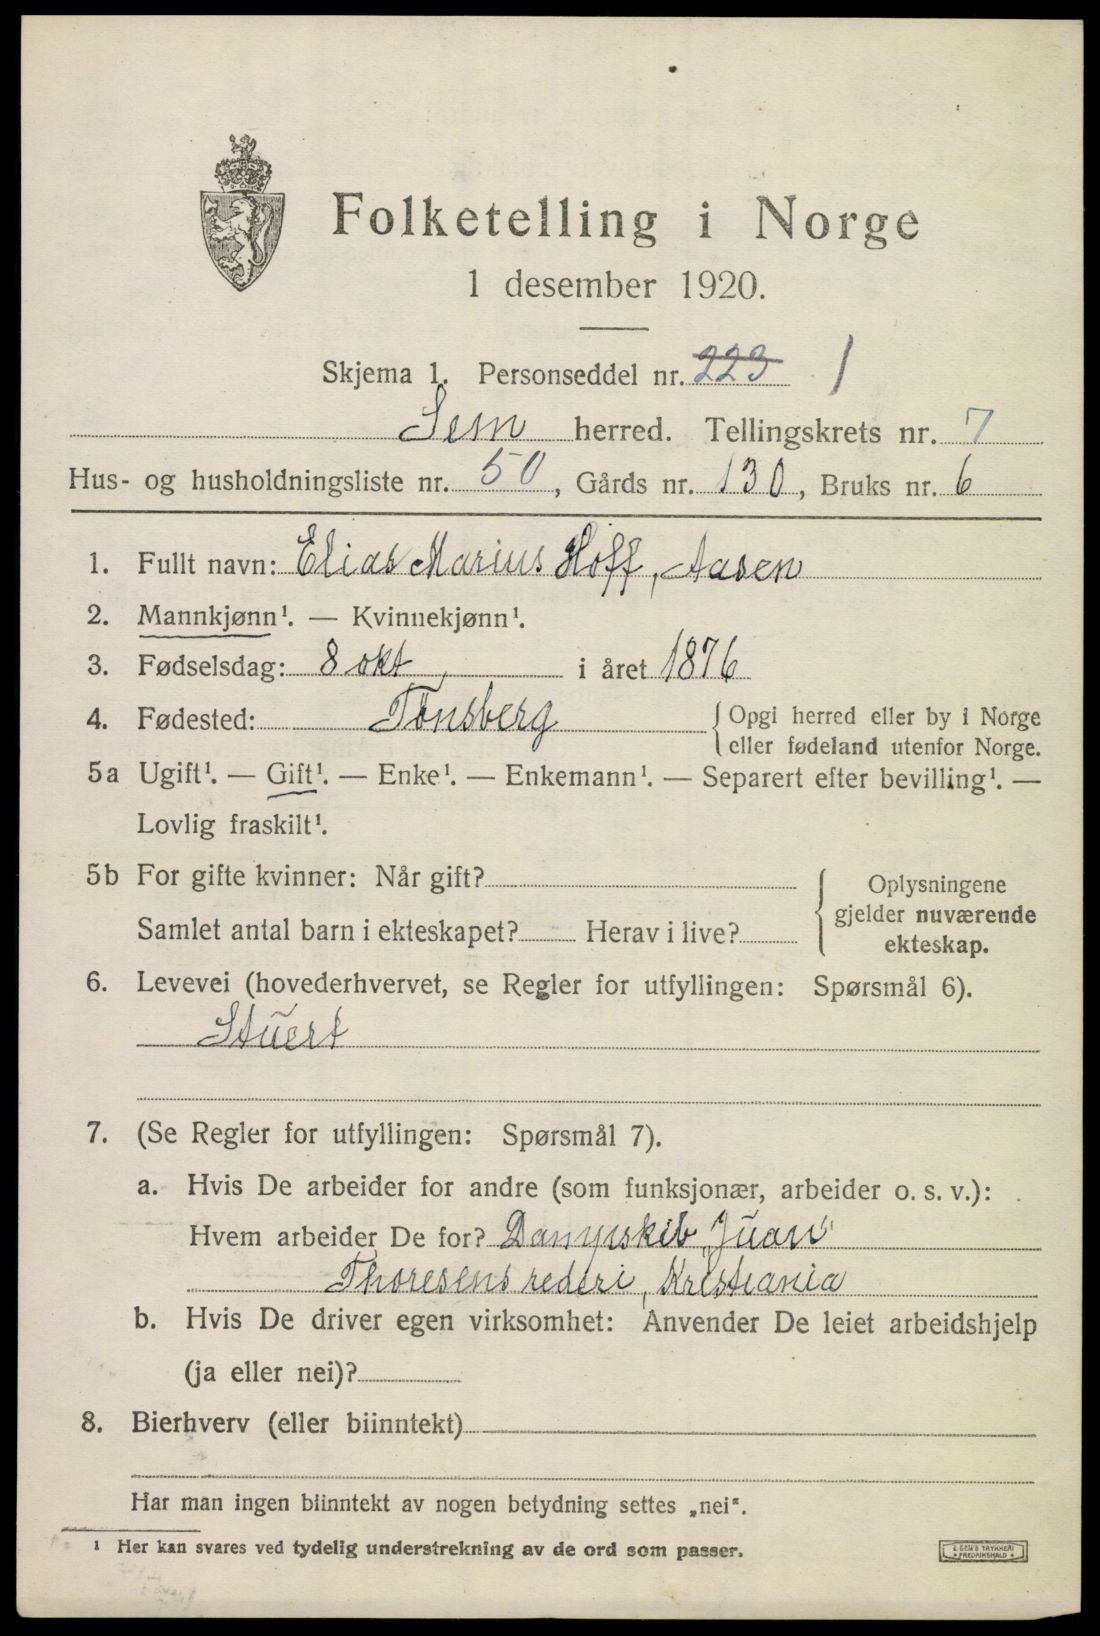 Folketelling i Norge
1 desember 1920.
Skjema 1. Personseddel nr. 223 1
Sem herred. Tellingskrets nr. 7
Hus- og husholdningsliste nr. 50, Gårds nr. 130, Bruks nr. 6
1. Fullt navn: Elias Marius Hoff, Aasen
2. Mannkjønn¹. — Kvinnekjønn¹.
3. Fødselsdag: 8 okt, i året 1876
4. Fødested: Tønsberg { Opgi herred eller by i Norge
eller fødeland utenfor Norge.
5a Ugift¹. — Gift¹. — Enke¹. — Enkemann¹. — Separert efter bevilling¹. —
Lovlig fraskilt¹.
5b For gifte kvinner: Når gift?
Samlet antal barn i ekteskapet? Herav i live?
{ Oplysningene
gjelder nuværende
ekteskap.
6. Levevei (hovederhvervet, se Regler for utfyllingen: Spørsmål 6).
Stuert
7. (Se Regler for utfyllingen: Spørsmål 7).
a. Hvis De arbeider for andre (som funksjonær, arbeider o. s. v.):
Hvem arbeider De for? Dampskib „Juan"
Thoresens rederi, Kristiania
b. Hvis De driver egen virksomhet: Anvender De leiet arbeidshjelp
(ja eller nei)?
8. Bierhverv (eller biinntekt)
Har man ingen biinntekt av nogen betydning settes „nei".
¹ Her kan svares ved tydelig understrekning av de ord som passer.
TRYKKERI
FREDRIKSHALD